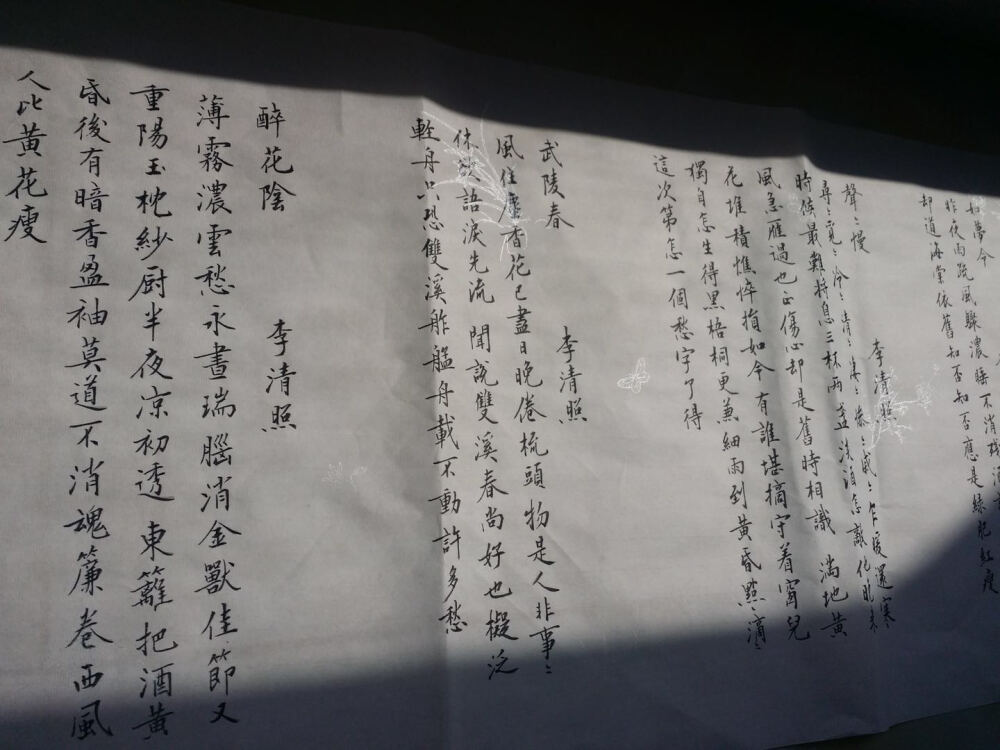 如夢令
昨夜雨疏風驟濃睡不消殘酒
却道海棠依舊知否知否應是綠肥紅瘦
聲〻慢 李清照
尋〻覓〻冷〻清〻凄〻慘〻戚〻乍暖還寒
時候最難將息三杯兩盞淡酒怎敵他晚來
風急雁過也正傷心却是舊時相識 滿地黃
花堆積憔悴損如今有誰堪摘守着窗兒
獨自怎生得黑梧桐更兼細雨到黃昏點〻滴〻
這次第怎一個愁字了得
武陵春 李清照
風住塵香花已盡日晚倦梳頭物是人非事〻
休欲語淚先流 聞說雙溪春尚好也擬泛
輕舟只恐雙溪舴艋舟載不動許多愁
醉花陰 李清照
薄霧濃雲愁永晝瑞腦消金獸佳節又
重陽玉枕紗厨半夜涼初透 東籬把酒黃
昏後有暗香盈袖莫道不消魂簾卷西風
人比黃花瘦